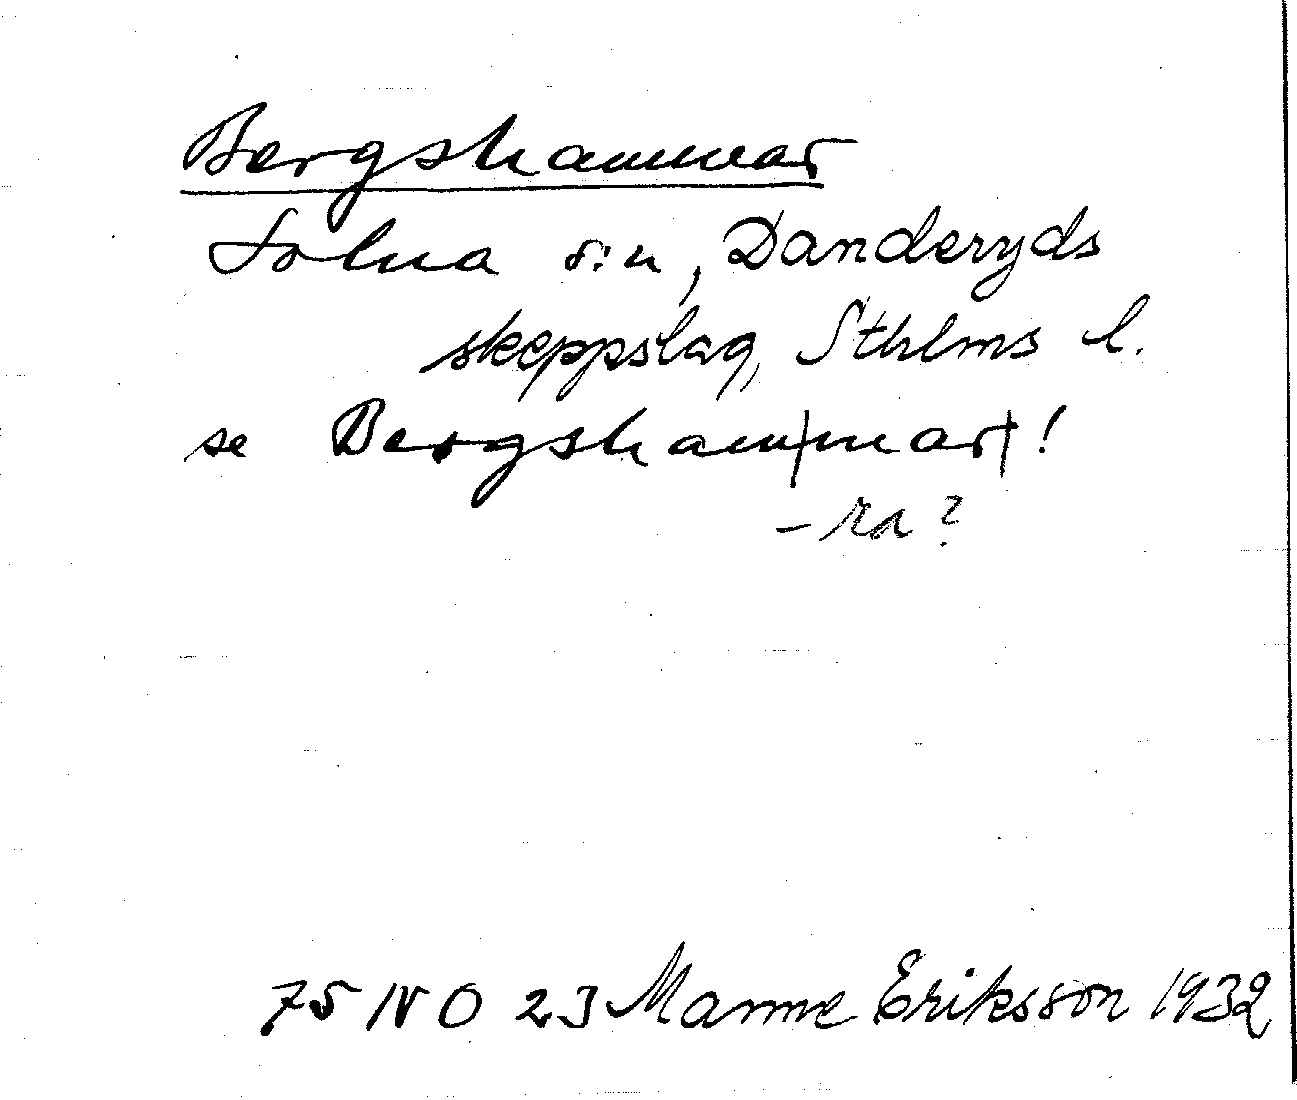 Bergshammar
Solna s:n, Danderyds
skeppslag, Sthlms l.
se Bergshammar!
-ra?
75 NO 23 Manne Eriksson 1932